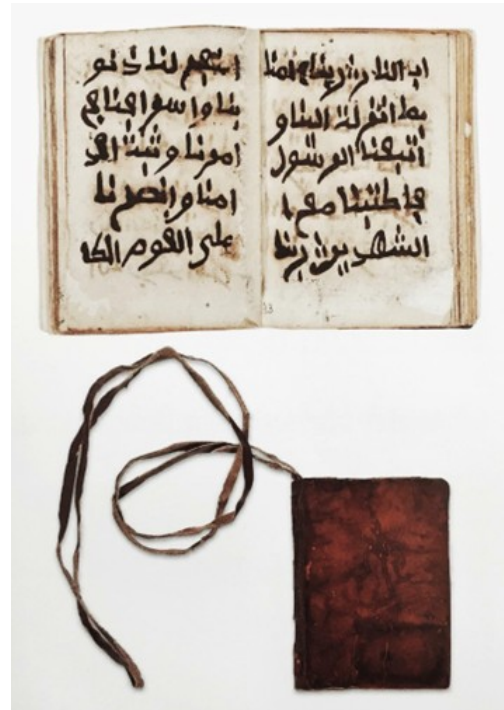 اب النار ربنا امنا
بما انزلت و
اتبعنا الرسول
فاكتبنا مع ا
الشهدين ربنا
اغفر لنا ذنو
بنا و
امرنا وثبت اقد
امنا وانصرنا
على القوم الكا